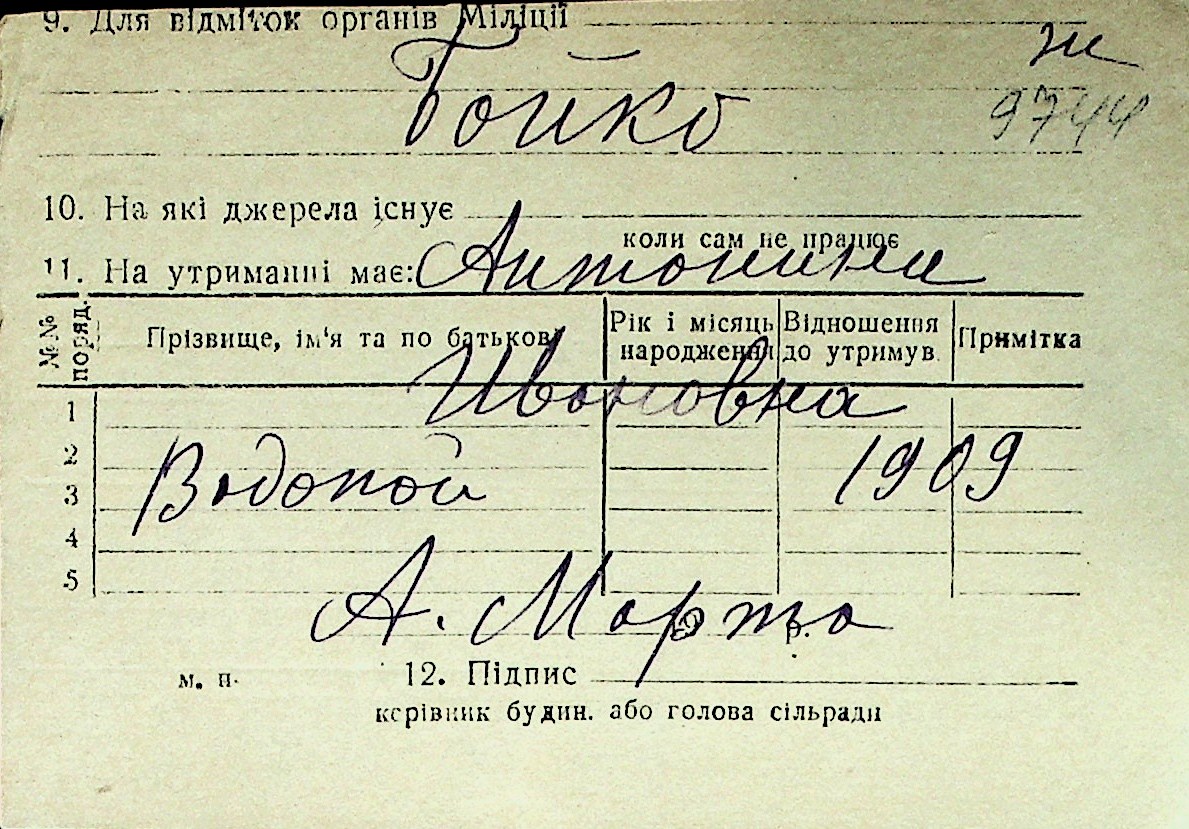 9. Для відміток органів Міліції
ж
Бойко
9744
10. На які джерела існує
коли сам не працює
11. На утриманні має:
Антонина
№№ поряд.
Прізвище, ім'я та по батькові
Рік і місяць народження
Відношення до утримув.
Примітка
Ивановна
1
2
3
4
5
Водопой
1909
А. Марта
19 р.
м. п.
12. Підпис
керівник будин. або голова сільради